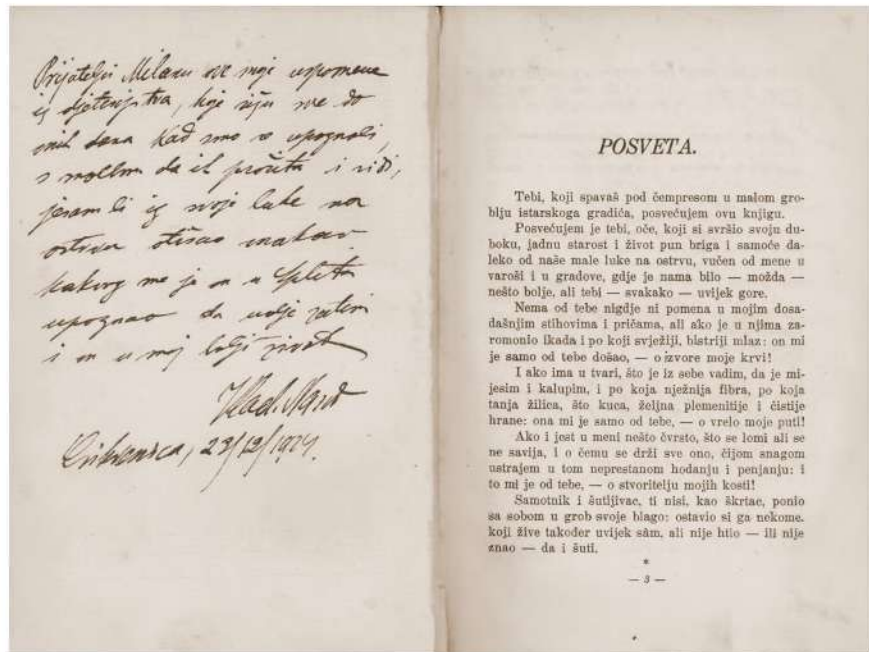 Prijatelju Milanu ove moje uspomene
iz djetinjstva, koje sižu sve do
onih dana kad smo se upoznali,
s molbom da ih pročita i vidi,
jesam li iz svoje luke na
ostrvu otišao onakav
kakvog me je on u Splitu
upoznao da uđe zatim
i on u moj bolji život
Vlad. Nazor
Crikvenica, 23/12/1924.
POSVETA.
Tebi, koji spavaš pod čempresom u malom gro-
blju istarskoga gradića, posvećujem ovu knjigu.
Posvećujem je tebi, oče, koji si svršio svoju du-
boku, jadnu starost i život pun briga i samoće da-
leko od naše male luke na ostrvu, vučen od mene u
varoši i u gradove, gdje je nama bilo — možda —
nešto bolje, ali tebi — svakako — uvijek gore.
Nema od tebe nigdje ni pomena u mojim dosa-
dašnjim stihovima i pričama, ali ako je u njima za-
romonio ikada i po koji svježiji, bistriji mlaz: on mi
je samo od tebe došao, — o izvore moje krvi!
I ako ima u tvari, što je iz sebe vadim, da je mi-
jesim i kalupim, i po koja nježnija fibra, po koja
tanja žilica, što kuca, željna plemenitije i čistije
hrane: ona mi je samo od tebe, — o vrelo moje puti!
Ako i jest u meni nešto čvrsto, što se lomi ali se
ne savija, i o čemu se drži sve ono, čijom snagom
ustrajem u tom neprestanom hodanju i penjanju: i
to mi je od tebe, — o stvoritelju mojih kosti!
Samotnik i šutljivac, ti nisi, kao škrtac, ponio
sa sobom u grob svoje blago: ostavio si ga nekome.
koji žive također uvijek sâm, ali nije htio — ili nije
znao — da i šuti.
*
— 3 —